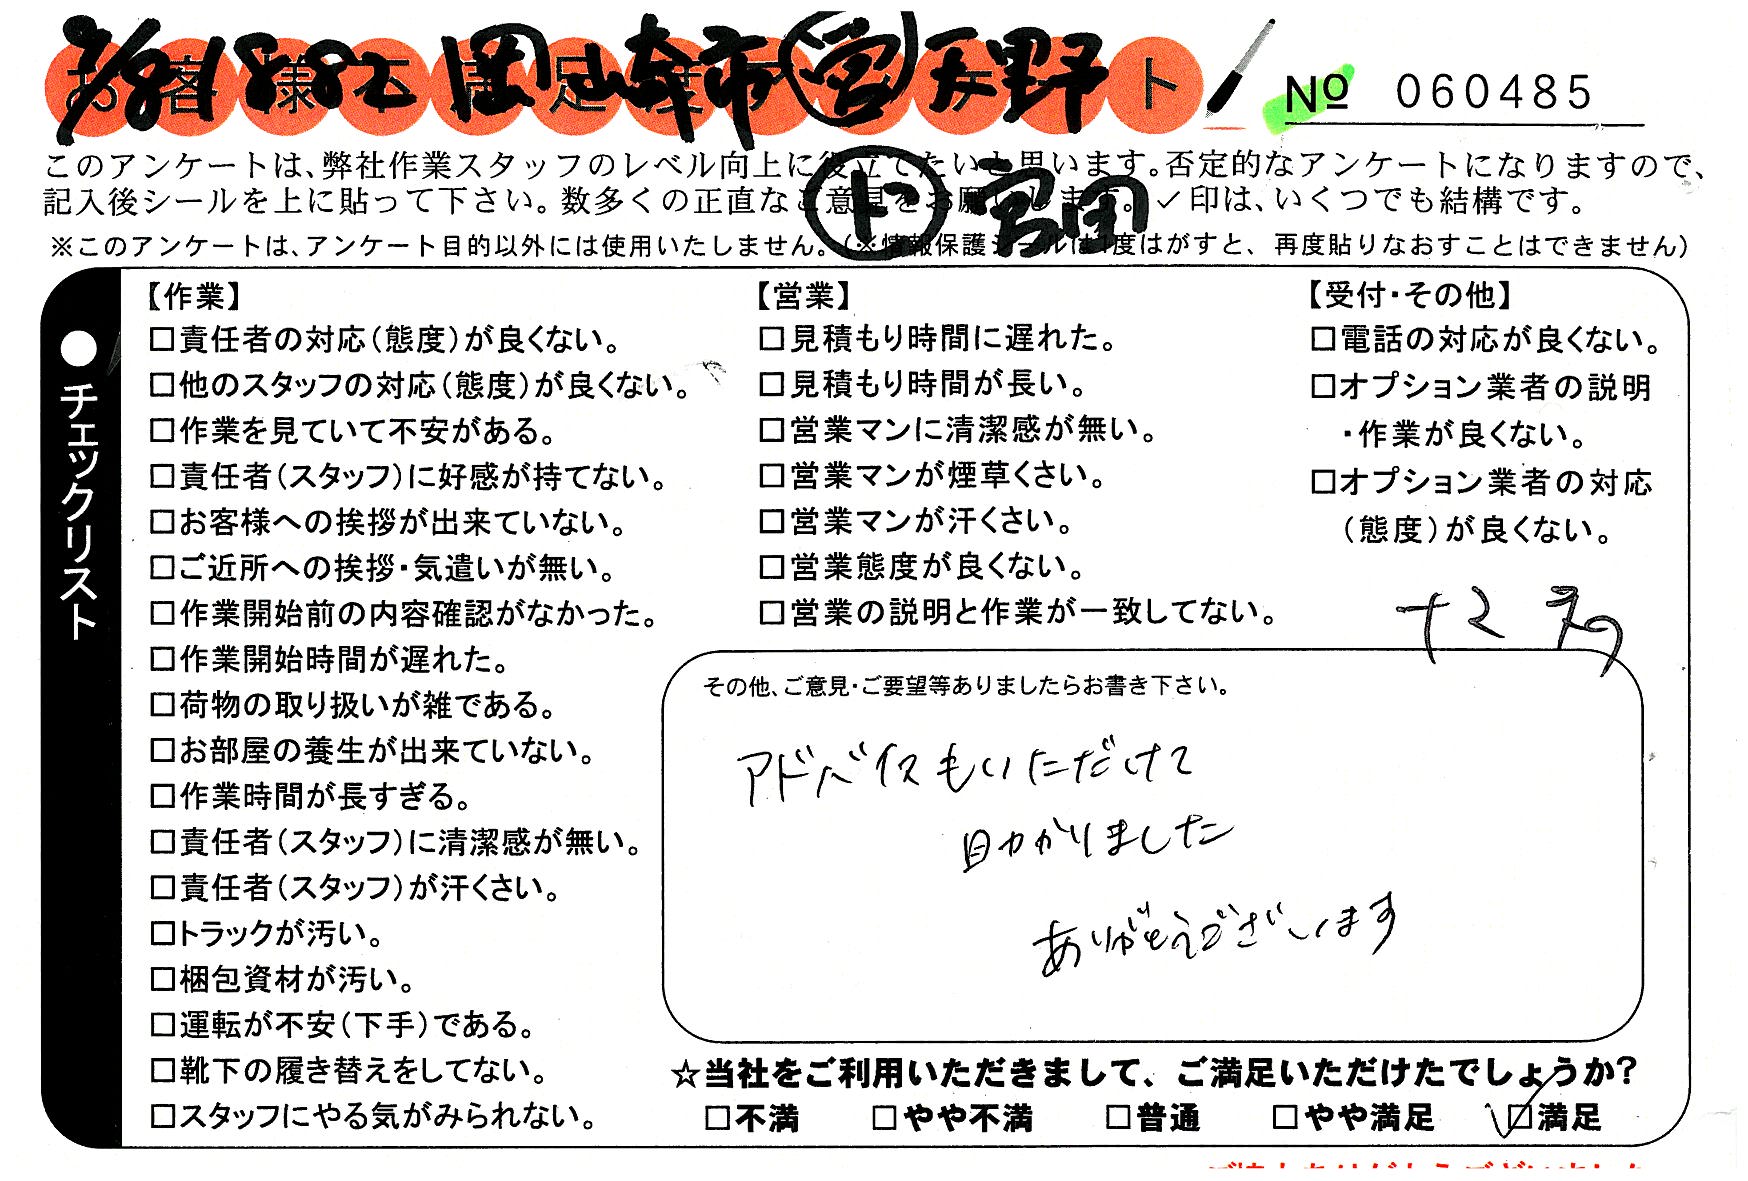 9/8 1882 岡山幸市 営 天野
お客様不満足度アンケート
No 060485
このアンケートは、弊社作業スタッフのレベル向上に役立てたいと思います。否定的なアンケートになりますので、
記入後シールを上に貼って下さい。数多くの正直なご意見をお願いします。✓印は、いくつでも結構です。
ド 宮田
※このアンケートは、アンケート目的以外には使用いたしません。(※情報保護シールは1度はがすと、再度貼りなおすことはできません)
●チェックリスト
【作業】
□責任者の対応(態度)が良くない。
□他のスタッフの対応(態度)が良くない。
□作業を見ていて不安がある。
□責任者(スタッフ)に好感が持てない。
□お客様への挨拶が出来ていない。
□ご近所への挨拶・気遣いが無い。
□作業開始前の内容確認がなかった。
□作業開始時間が遅れた。
□荷物の取り扱いが雑である。
□お部屋の養生が出来ていない。
□作業時間が長すぎる。
□責任者(スタッフ)に清潔感が無い。
□責任者(スタッフ)が汗くさい。
□トラックが汚い。
□梱包資材が汚い。
□運転が不安(下手)である。
□靴下の履き替えをしてない。
□スタッフにやる気がみられない。
【営業】
□見積もり時間に遅れた。
□見積もり時間が長い。
□営業マンに清潔感が無い。
□営業マンが煙草くさい。
□営業マンが汗くさい。
□営業態度が良くない。
□営業の説明と作業が一致してない。
【受付・その他】
□電話の対応が良くない。
□オプション業者の説明
・作業が良くない。
□オプション業者の対応
(態度)が良くない。
その他、ご意見・ご要望等ありましたらお書き下さい。
アドバイスもいただけて
助かりました
ありがとうございます
☆当社をご利用いただきまして、ご満足いただけたでしょうか?
□不満 □やや不満 □普通 □やや満足 ☑満足